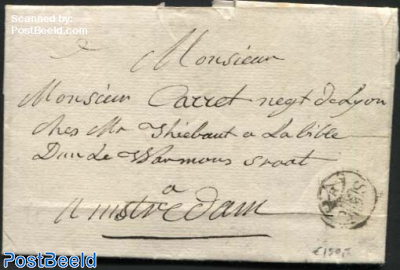 Scanned by:
PostBeeld.com
Monsieur
Monsieur Carret negt de Lyon
ches Mr Thiebaut a La bible
Dans Le Warmous straat
a
Amstredam
€150,-
PostBeeld